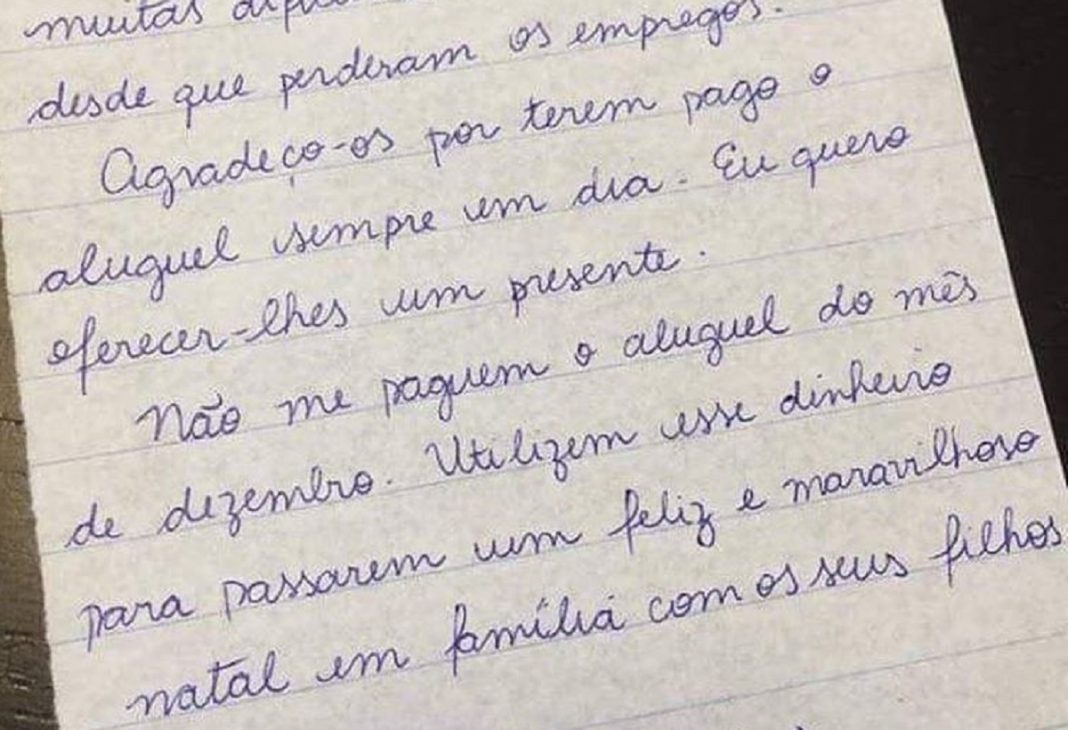 muitas
desde que perderam os empregos.
Agradeço-os por terem pago o
aluguel sempre em dia. Eu quero
oferecer-lhes um presente.
Não me paguem o aluguel do mês
de dezembro. Utilizem esse dinheiro
para passarem um feliz e maravilhoso
natal em família com os seus filhos